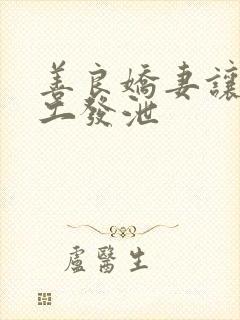 善良嬌妻讓
工發泄
盧醫生